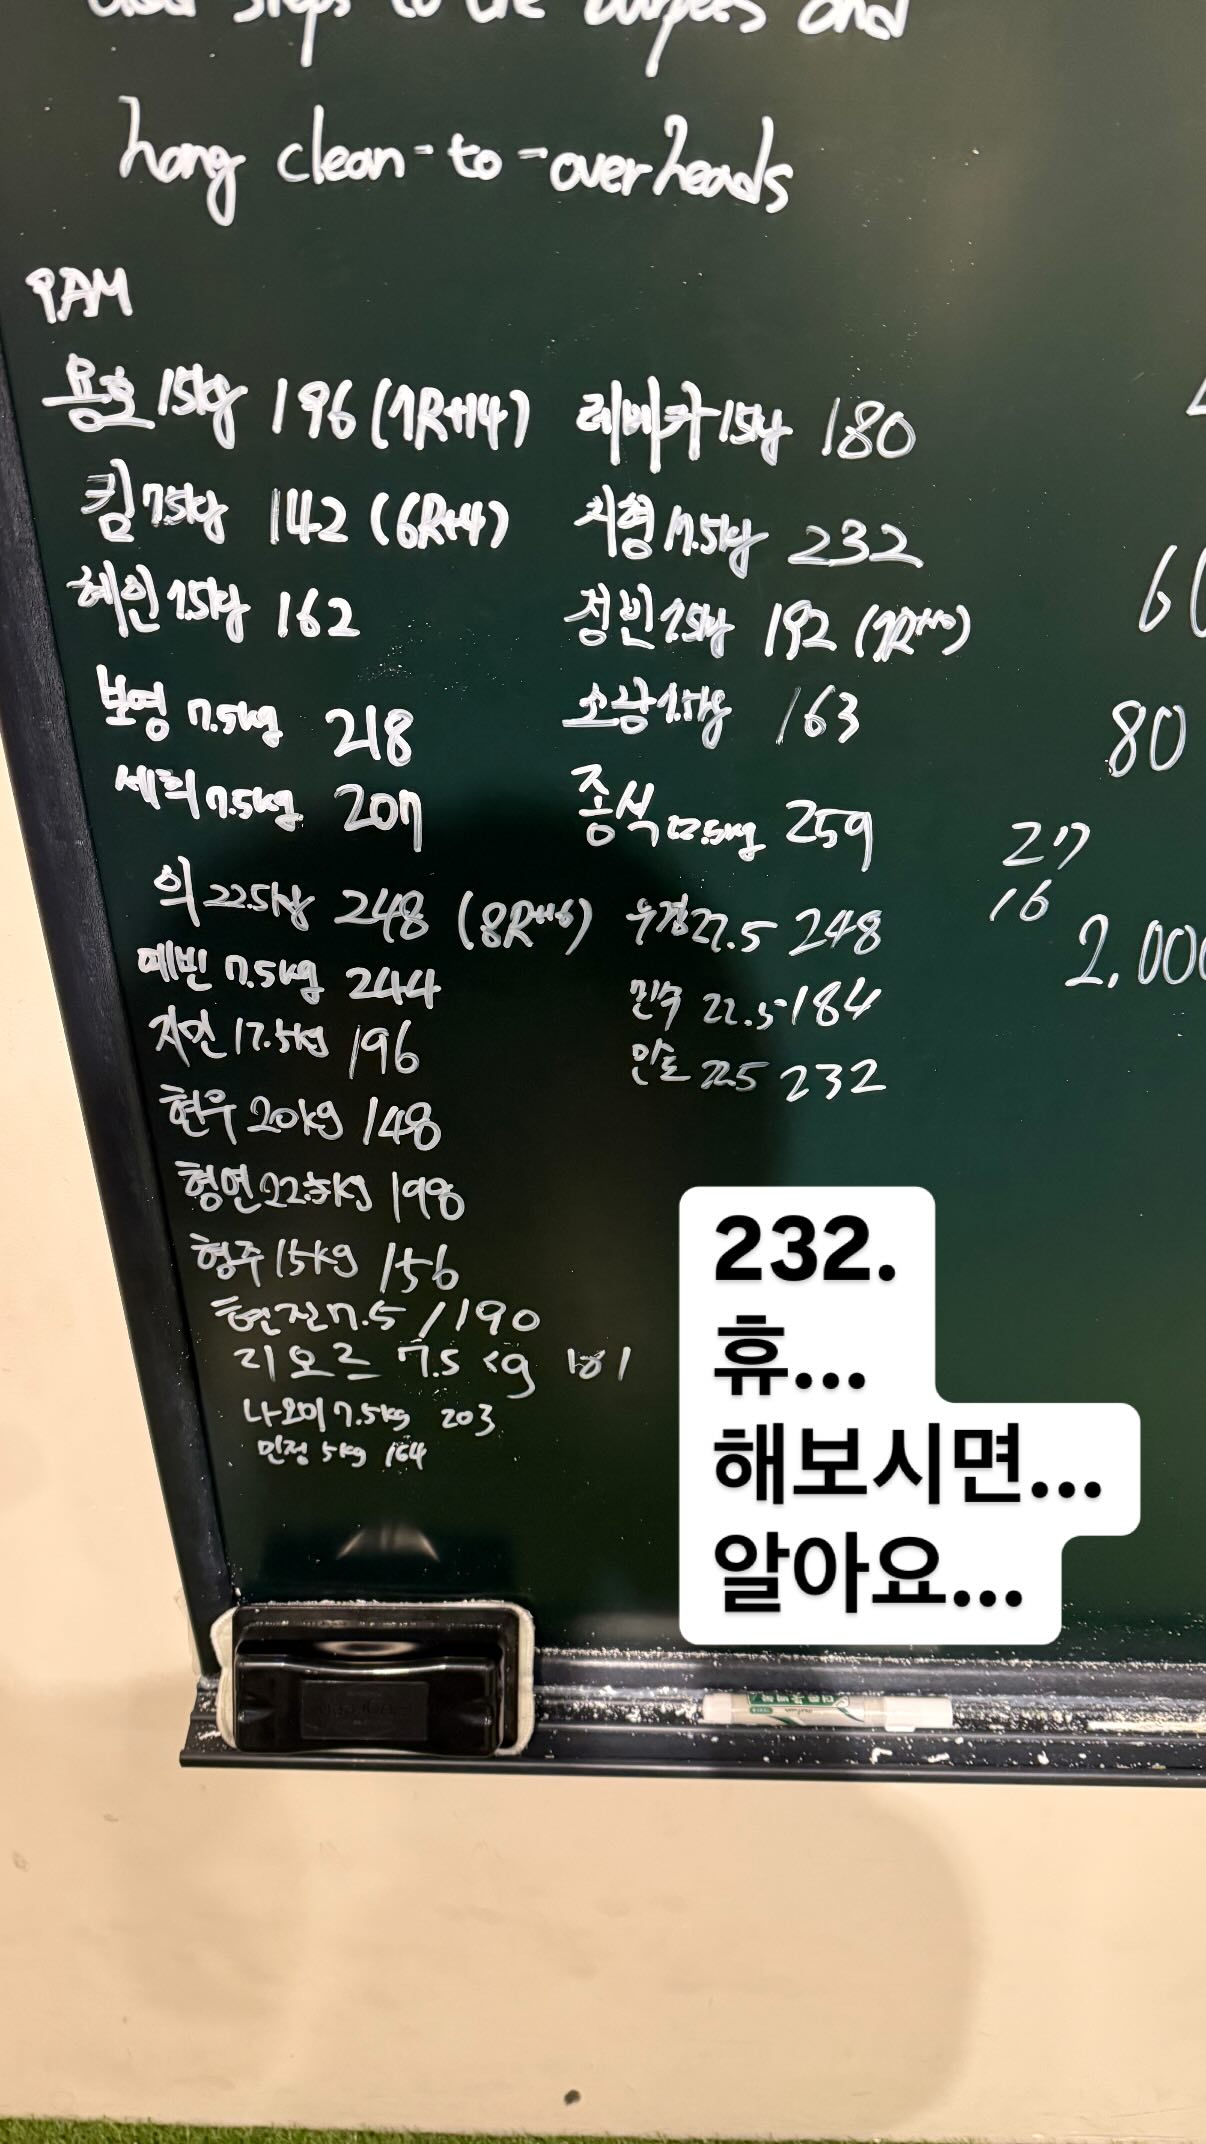 steps to the burpees and
hang clean-to-overheads
PAM
용호 15kg 196 (7R+14)
킴 7.5kg 142 (6R+4)
혜인 7.5kg 162
보영 7.5kg 218
세희 7.5kg 207
의 22.5kg 248 (8R+16)
예빈 7.5kg 244
지인 17.5kg 196
현우 20kg 148
형연 22.5kg 198
형주 15kg 156
현진 7.5 / 190
리오르 7.5kg 181
나오미 7.5kg 203
민정 5kg 164
레베카 15kg 180
지형 17.5kg 232
정빈 7.5kg 192
163
종식 22.5kg 259
우정 22.5 248
민수 22.5 184
22.5 232
80
27
16
232.
휴...
해보시면...
알아요...